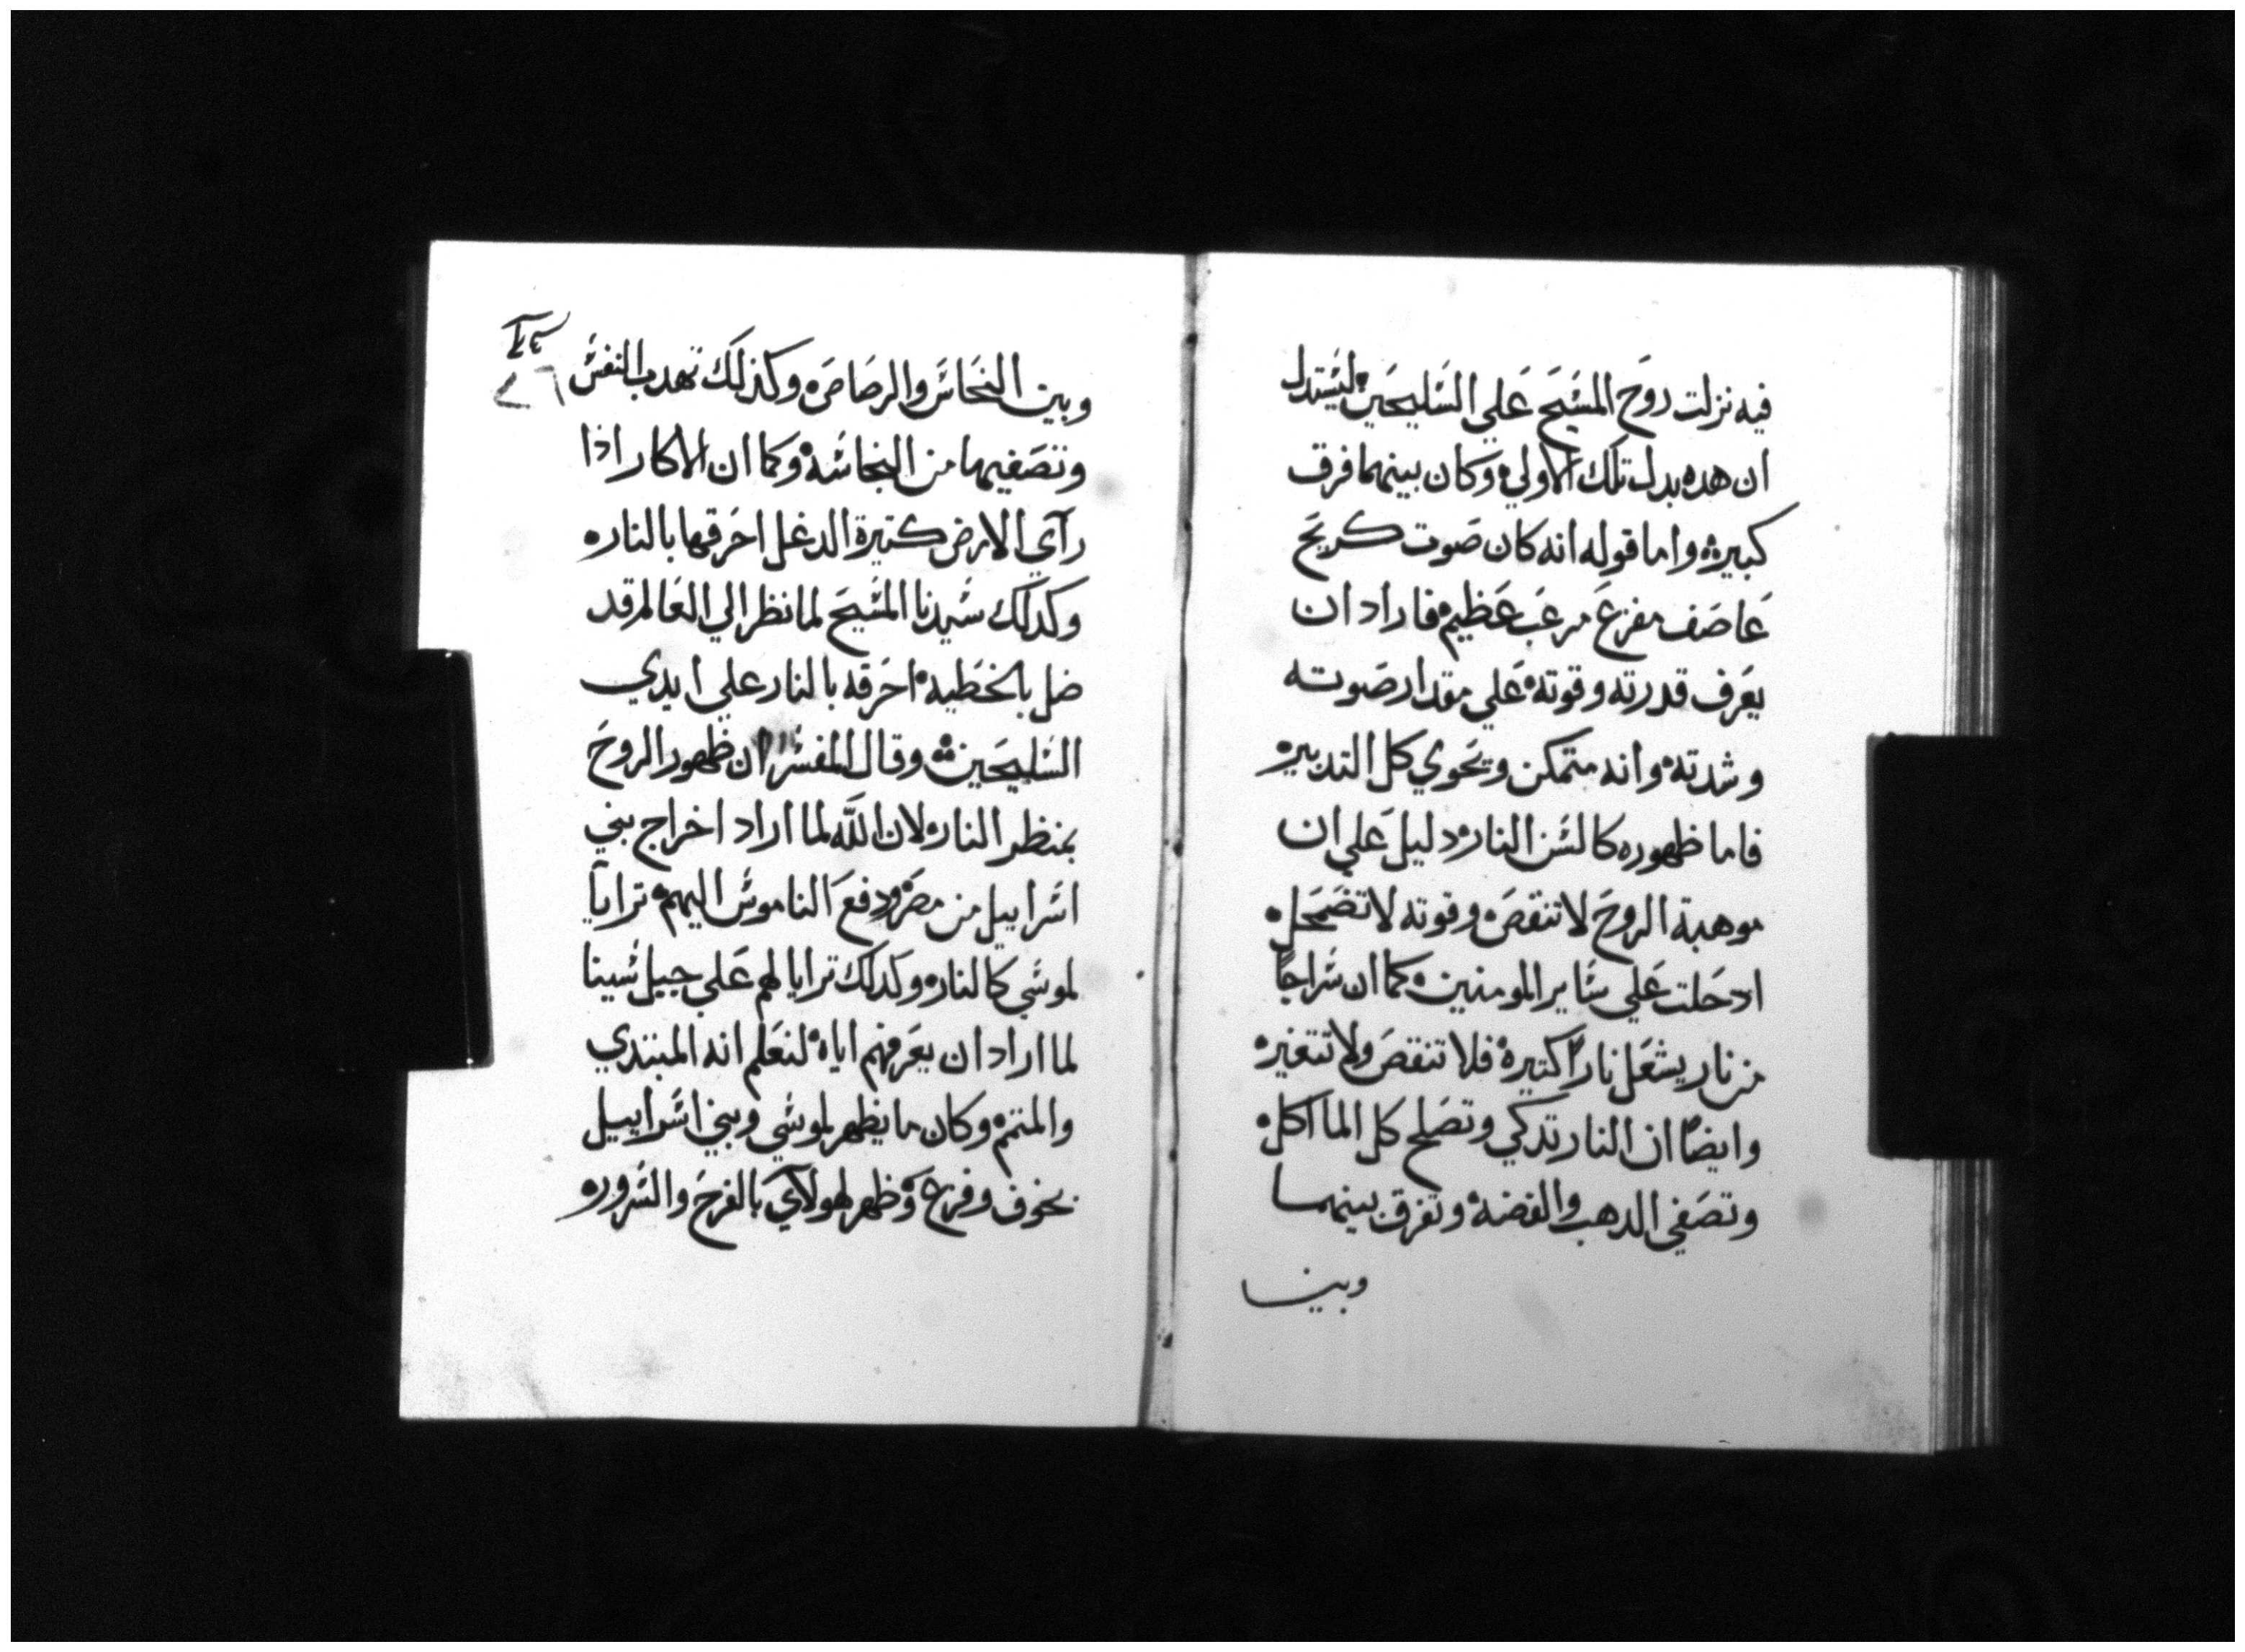 فيه نزلت روح المسيح علي السليحين ليستدل
ان هده بدل تلك الاولي وكان بينهما فرق
كبيره واما قوله انه كان صوت كريح
عاصف مفزع مرعب عظيم فاراد ان
يعرف قدرته وقوته علي مقدار صوته
وشدته وانه متمكن وتحوي كل التدبير
فاما ظهوره كالسن النار دليل علي ان
موهبة الروح لا تنقص وقوته لا تضمحل
ادحلت علي ساير المومنين كما ان سراجا
من نار يشعل نارا كتيره فلا تنقص ولا تتغير
وايضا ان النار تدكي وتصلح كل الماكل
وتصفي الدهب والفضه وتفرق بينهما
وبين
وبين النحاس والرصاص وكذلك تهدب النفس
وتصفيها من النجاسه وكما ان الاكار اذا
رآي الارض كتيرة الدغل احرقها بالنار
وكدلك سيدنا المسيح لما نظر الي العالم قد
ضل بالخطيه احرقه بالنار علي ايدي
السليحين وقال المفسر ان ظهور الروح
بمنظر النار لان الله لما اراد اخراج بني
اسراييل من مصر ودفع الناموس اليهم ترايا
لموسي كالنار وكدلك ترايا لهم علي جبل سينا
لما اراد ان يعرفهم اياه لنعلم انه المبتدي
والمتمم وكان ما يظهر لموسي وبني اسراييل
بخوف وفزع وظهر لهولاي بالفرح والسرور